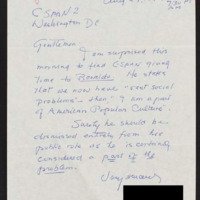 CSPAN 2
Washington DC
Gentlemen
I am surprised this
morning to find CSPAN giving
time to
He states
that we now have "vast social
problems" then "I am a part
of American Popular Culture".
Surely he should be
dismissed entirely from
public role as he is certainly
considered a part of the
problem.